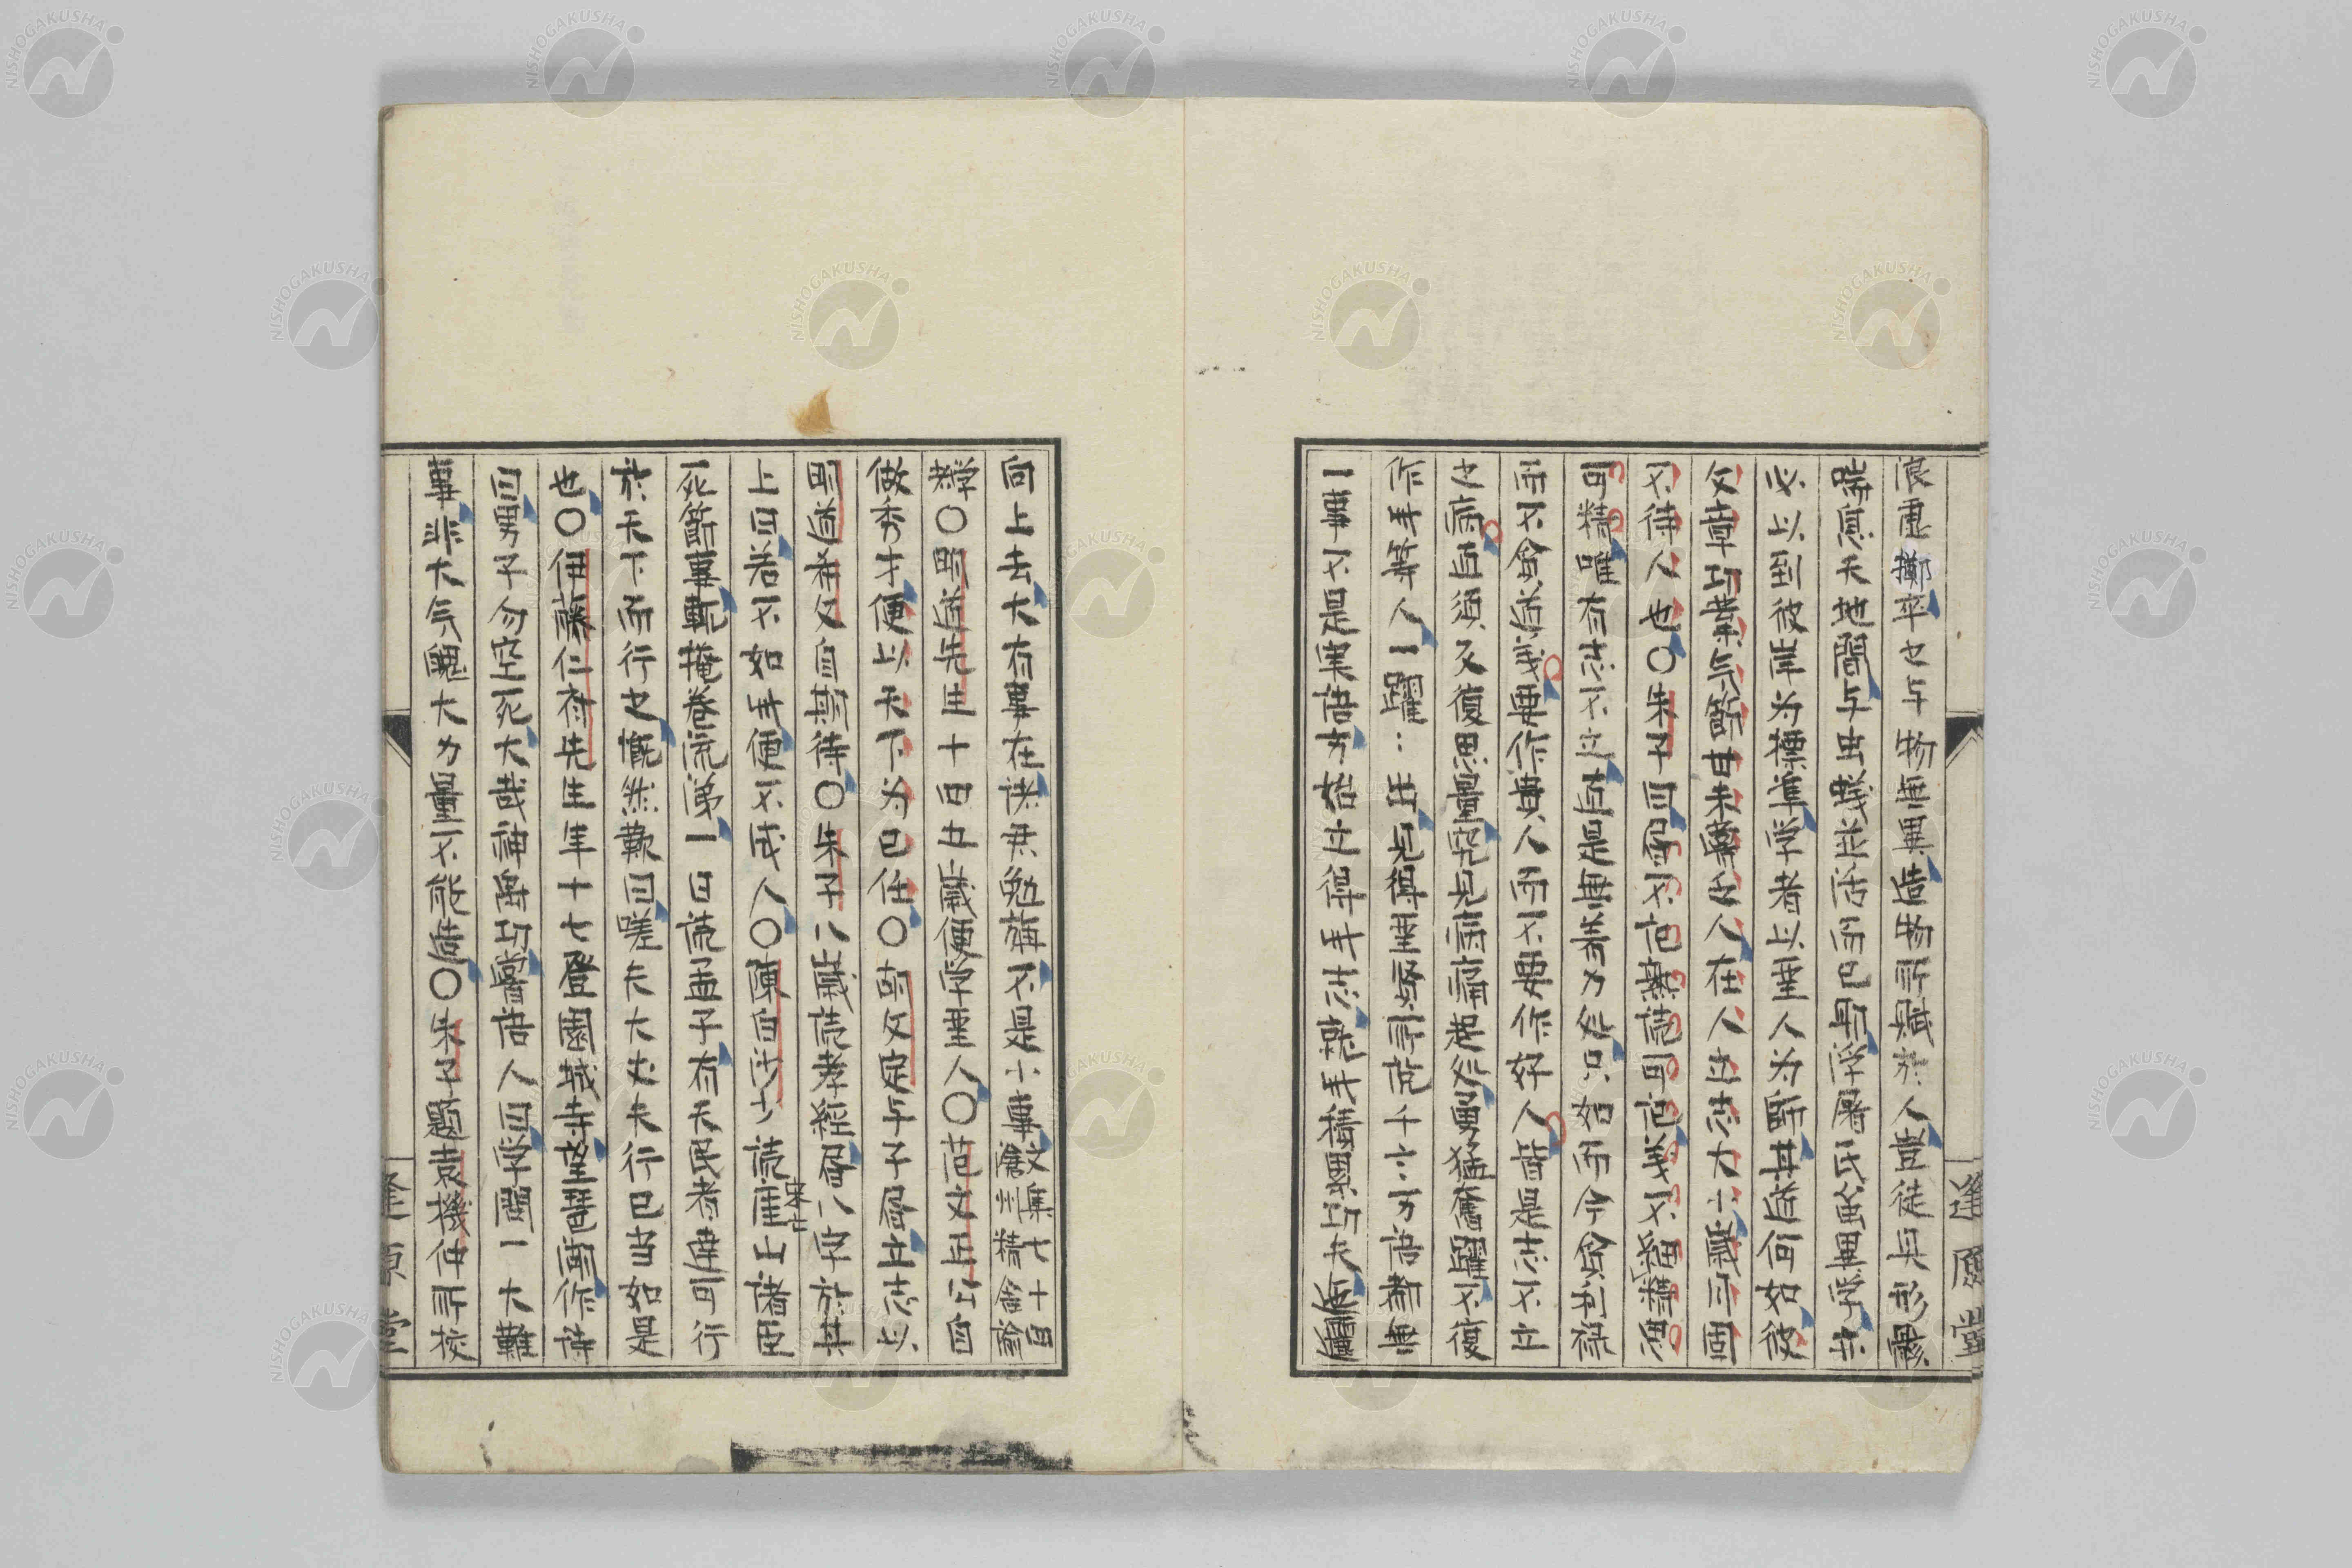 浪處擲卒之与物無異造物所賦於人豈徒具形骸
喘息天地間与虫蟻並活而已耶浮屠氏虽異学亦
必以到彼岸为標準学者以聖人为師其道何如彼
文章功業气節世未嘗乏人在人立志大小歲月固
不待人也〇朱子曰書不记熟読可记義不細精思
可精唯有志不立直是無着力処只如而今貪利禄
而不貪道義要作貴人而不要作好人皆是志不立
之病直須反復思量究見病痛起処勇猛奮躍不復
作此等人一躍〻出見得聖賢所説千言万語都無
一事不是実語方始立得此志就此積累功夫迤邐
向上去大有事在諸君勉旃不是小事文集七十四諭
滄州精舍
学〇明道先生十四五歲便学聖人〇范文正公自
做秀才便以天下为己任〇胡文定与子書立志以
明道希文自期待〇朱子八歲読孝經書八字於其
上曰若不如此便不成人〇陳白沙少読崖山諸臣
宋亡
死節事輒掩卷流涕一日読孟子有天民者達可行
於天下而行之慨然歎曰嗟夫大丈夫行己当如是
也〇伊藤仁斎先生年十七登園城寺望琶湖作詩
曰男子勿空死大哉神禹功嘗語人曰学問一大難
事非大气魄大力量不能造〇朱子題袁機仲所校
逢原堂
逢原堂